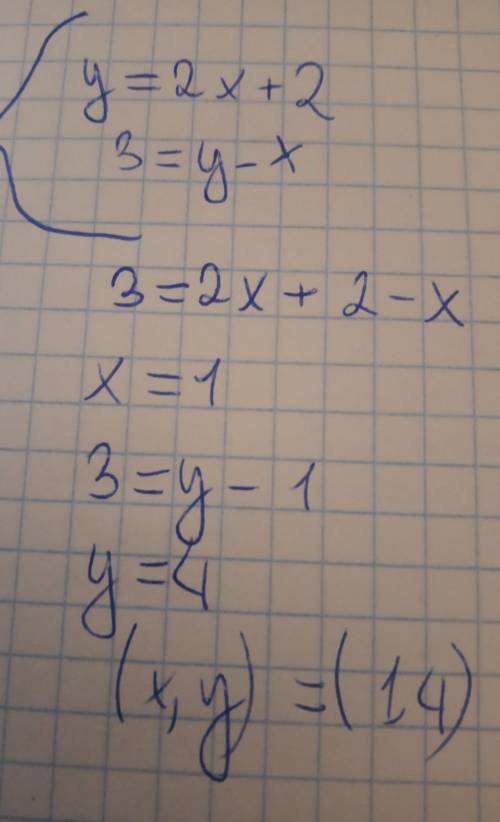 y = 2x + 2
3 = y - x
3 = 2x + 2 - x
x = 1
3 = y - 1
y = 4
(x, y) = (14)